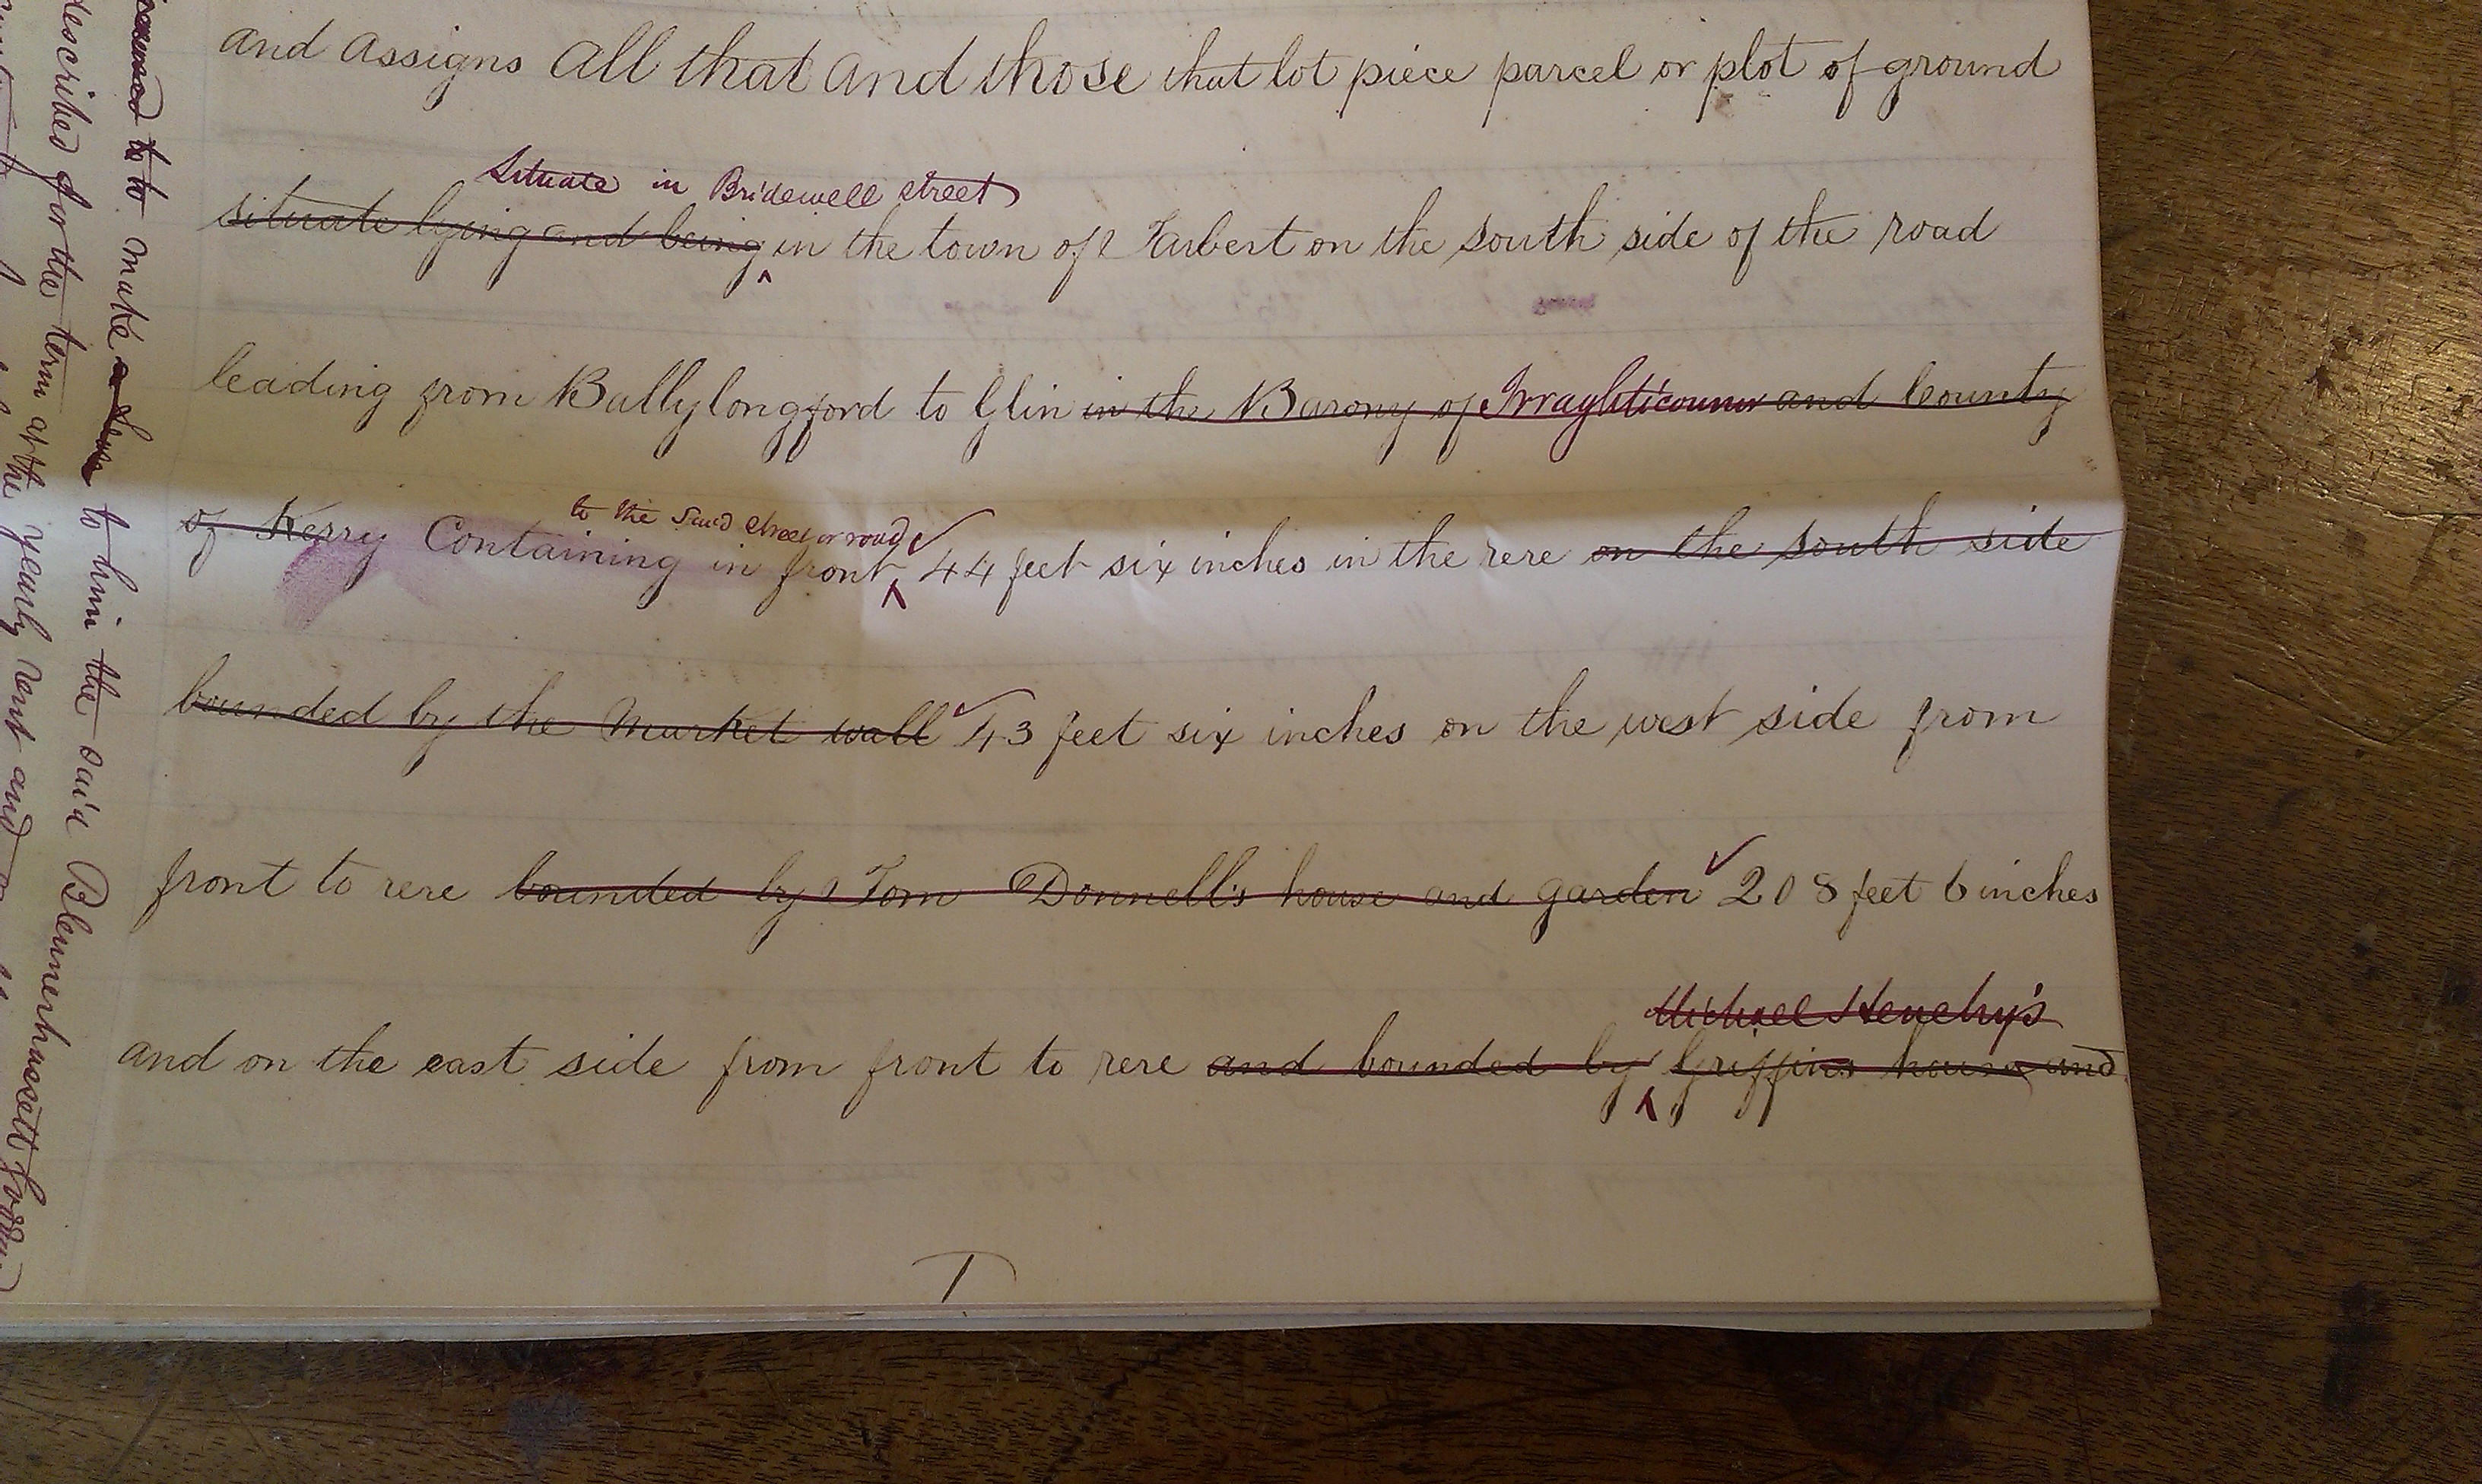 and assigns All that and those that lot piece parcel or plot of ground
Situate in Bridewell street
situate lying and being in the town of Tarbert on the south side of the road
leading from Ballylongford to Glin in the Barony of Irraghticonnor and County
to the said street or road
of Kerry Containing in front 44 feet six inches in the rere on the south side
bounded by the Market wall 43 feet six inches on the west side from
front to rere bounded by Tom Donnell's house and garden 208 feet 6 inches
Michael Henchy's
and on the east side from front to rere and bounded by Griffins house and
to to make a to him the said Blennerhassett
described for the term of the yearly rent and